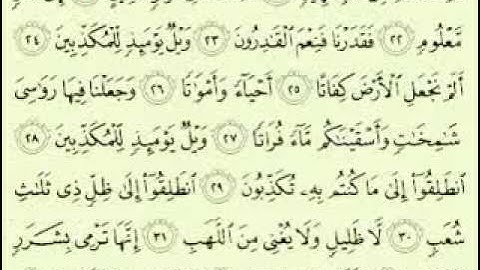 مَّعۡلُومٖ ٢٢ فَقَدَرۡنَا فَنِعۡمَ ٱلۡقَٰدِرُونَ ٢٣ وَيۡلٞ يَوۡمَئِذٖ لِّلۡمُكَذِّبِينَ ٢٤
أَلَمۡ نَجۡعَلِ ٱلۡأَرۡضَ كِفَاتًا ٢٥ أَحۡيَآءٗ وَأَمۡوَٰتٗا ٢٦ وَجَعَلۡنَا فِيهَا رَوَٰسِيَ
شَٰمِخَٰتٖ وَأَسۡقَيۡنَٰكُم مَّآءٗ فُرَاتٗا ٢٧ وَيۡلٞ يَوۡمَئِذٖ لِّلۡمُكَذِّبِينَ ٢٨
ٱنطَلِقُوٓاْ إِلَىٰ مَا كُنتُم بِهِۦ تُكَذِّبُونَ ٢٩ ٱنطَلِقُوٓاْ إِلَىٰ ظِلّٖ ذِي ثَلَٰثِ
شُعَبٖ ٣٠ لَّا ظَلِيلٖ وَلَا يُغۡنِي مِنَ ٱللَّهَبِ ٣١ إِنَّهَا تَرۡمِي بِشَرَرٖ